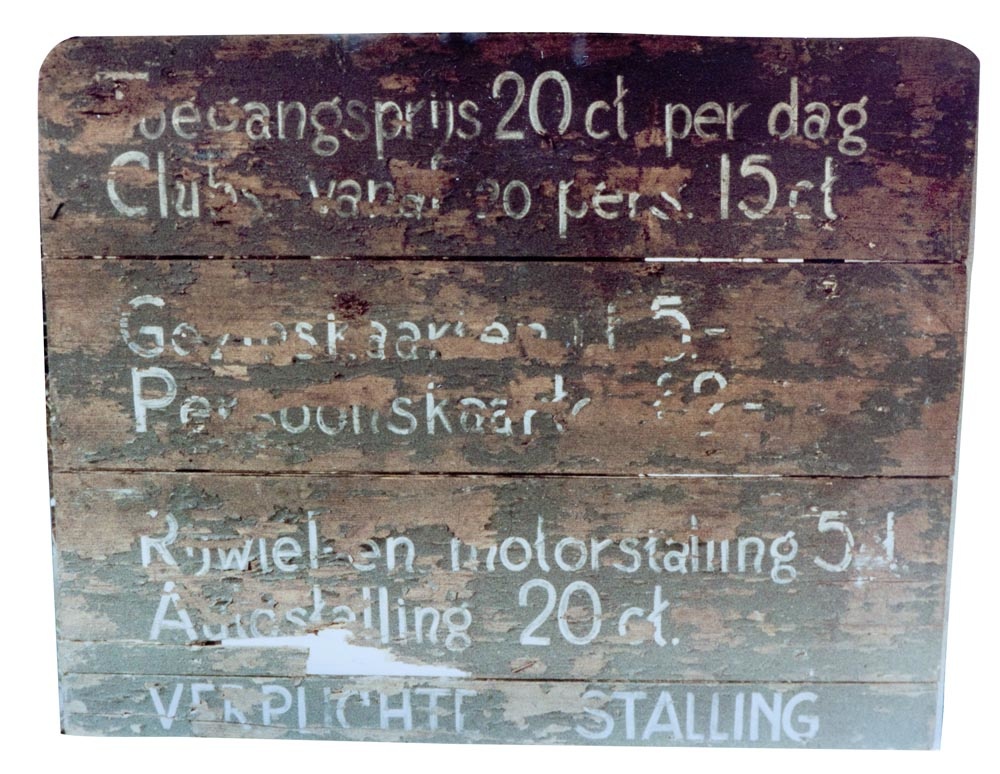 Toegangsprijs 20 ct per dag
Clubs vanaf 20 pers. 15 ct
Gezinskaarten f 5.-
Persoonskaart f 2.-
Rijwiel- en motorstalling 5 ct.
Autostalling 20 ct.
VERPLICHTE STALLING